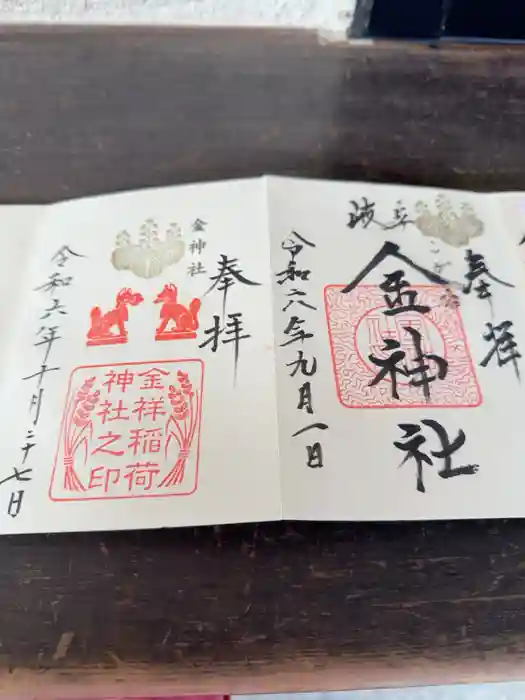 奉拝
岐阜
こがね
金神社
令和六年九月一日
奉拝
金神社
金祥稲荷
神社之印
令和六年十月二十七日